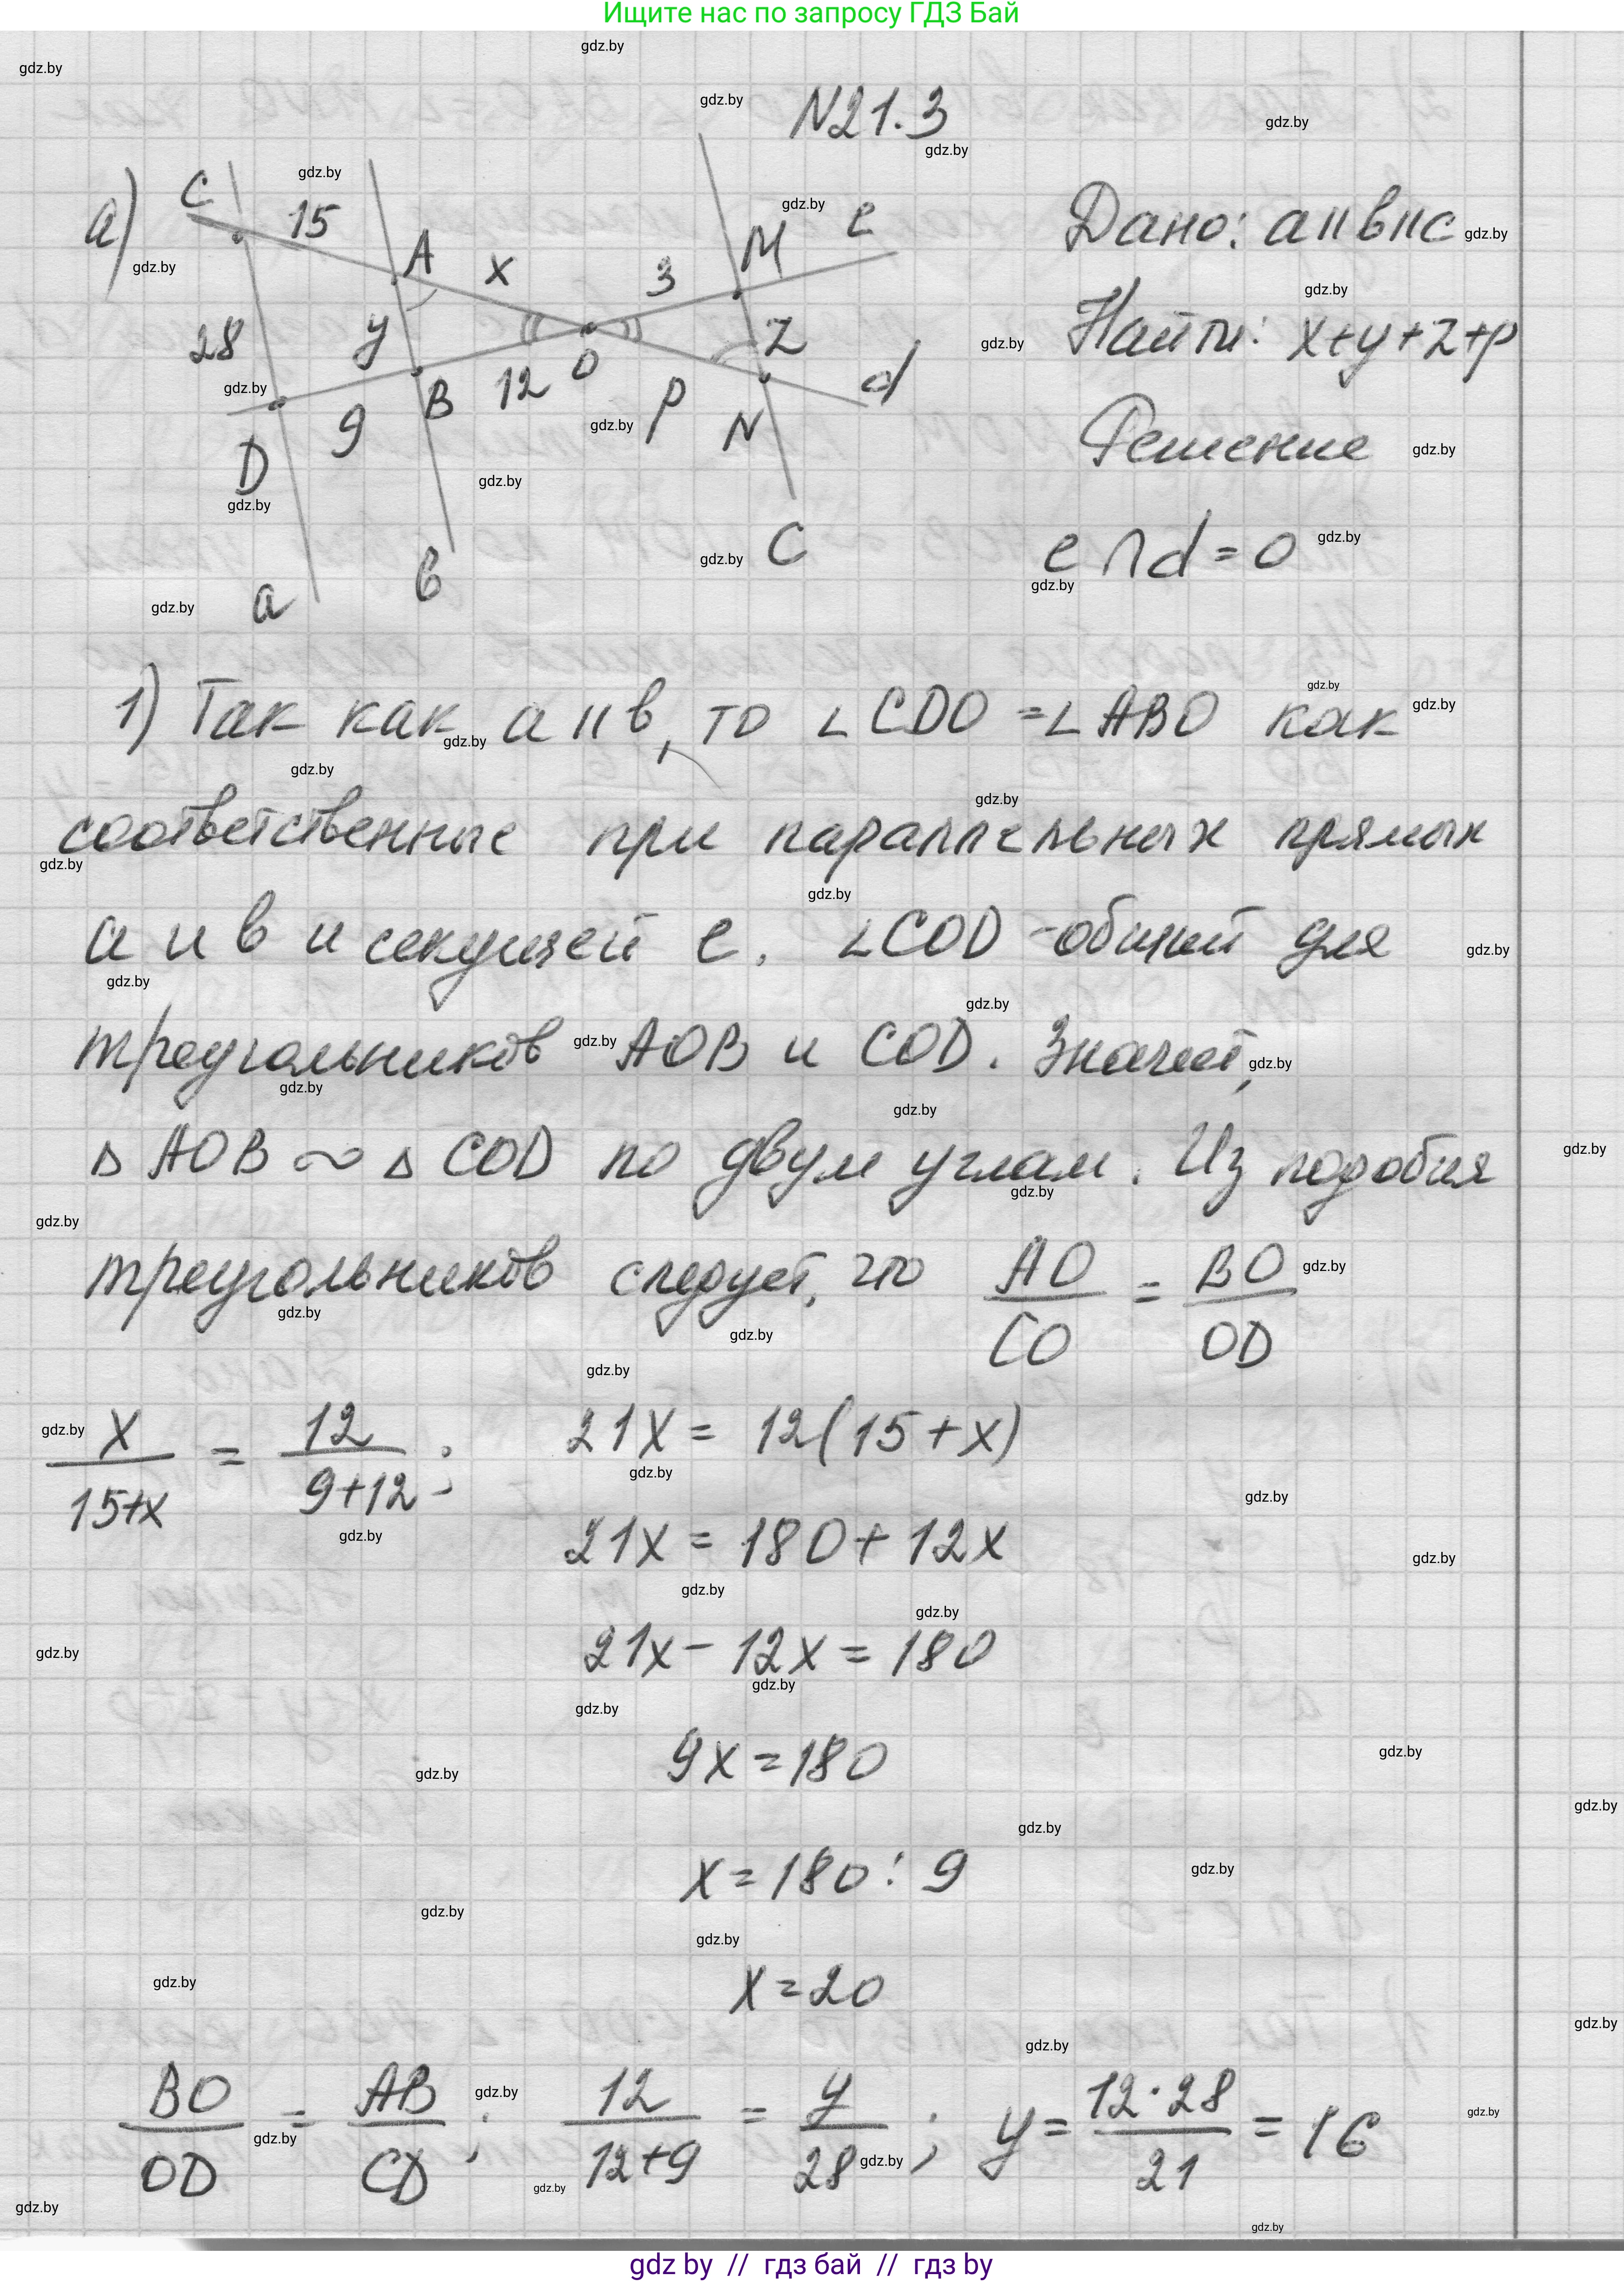 Ищите нас по запросу ГДЗ Бай
N21.3
а)
C
15
A
x
3
M
e
28
y
O
z
d
D
9
B
12
p
N
a
в
c
Дано: a॥в॥c
Найти: x+y+z+p
Решение
e ∩ d = O
1) Так как a॥в, то ∠CDO = ∠ABO как
соответственные при параллельных прямых
a и в и секущей e. ∠COD - общий для
треугольников AOB и COD. Значит,
△AOB ~ △COD по двум углам. Из подобия
треугольников следует, что AO/CO = BO/OD
x/15+x = 12/9+12; 21x = 12(15+x)
21x = 180 + 12x
21x - 12x = 180
9x = 180
x = 180 : 9
x = 20
BO/OD = AB/CD; 12/12+9 = y/28; y = 12·28/21 = 16
gdz by // гдз бай // гдз by